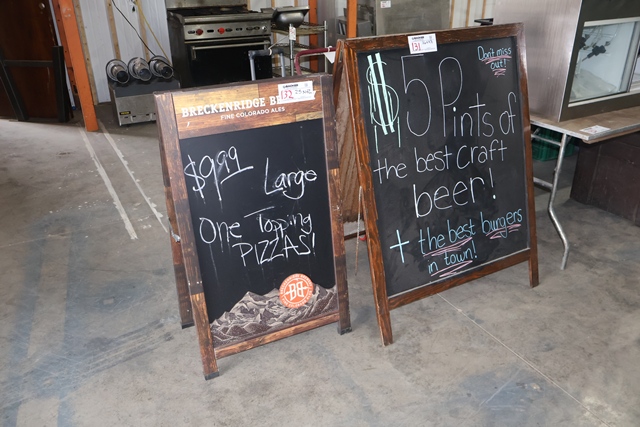 BRECKENRIDGE
FINE COLORADO ALES
132
$9.99 Large
One Topping
PIZZAS!
BB
131
Don't miss
out!
$5 Pints of
the best craft
beer!
+ the best burgers
in town!